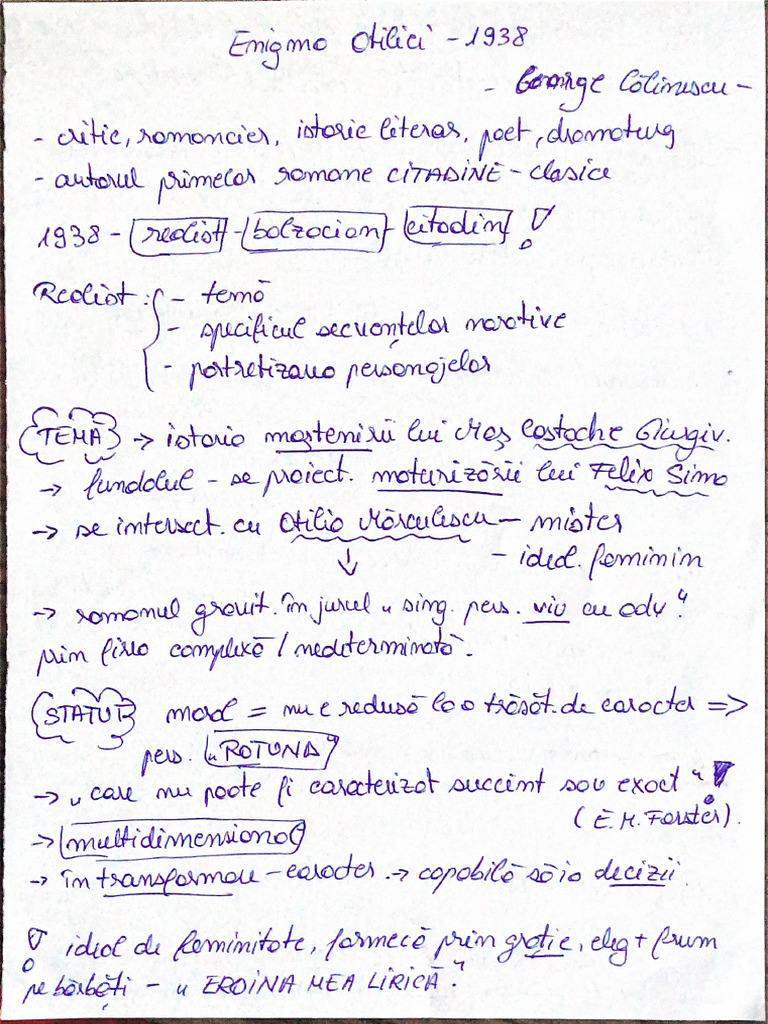 Enigma Otiliei - 1938
- George Călinescu -
- critic, romancier, istoric literar, poet, dramaturg
- autorul primelor romane CITADINE - clasice
1938 - realist - balzacian - citadin !
Realist: { - temă
- specificul secvențelor narative
- portretizarea personajelor
TEMĂ → istoria moștenirii lui Moș Costache Giurgiu.
→ fundalul - se proiect. maturizării lui Felix Sima
→ se intersect. cu Otilia Mărculescu - mister
↓ - ideal. feminin
→ romanul gravit. în jurul „sing. pers. viu cu adv“.
prin firea complexă / nedeterminată.
STATUT moral = nu e redusă la o trăsăt. de caracter =>
pers. „ROTUND“
→ „care nu poate fi caracterizat succint sau exact“ !
(E.M. Forster).
→ multidimensional
→ în transformare - caracter → capabilă să ia decizii.
! ideal de feminitate, farmecă prin grație, eleg + frum
pe bărbați - „EROINA MEA LIRICĂ“.